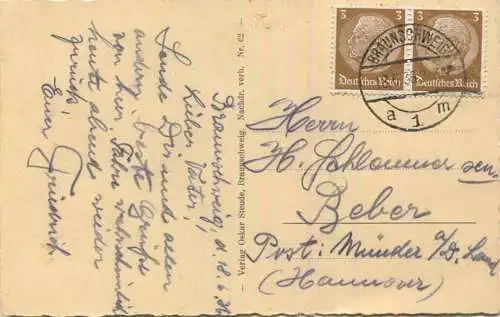 Braunschweig, d. 18.6.36
Lieber Vater,
Sende Dir und allen
andern beste Grüße
von hier. Fahre wahrscheinlich
heute abend wieder
zurück
Euer Friedrich.
Verlag Oskar Stende, Braunschweig. Nachdr. verb. Nr. 62
3 3
Deutsches Reich Deutsches Reich
BRAUNSCHWEIG
a 1 m
Herrn
H. Schlommer sen.
Beber
Post: Münder a/D. Land
(Hannover)